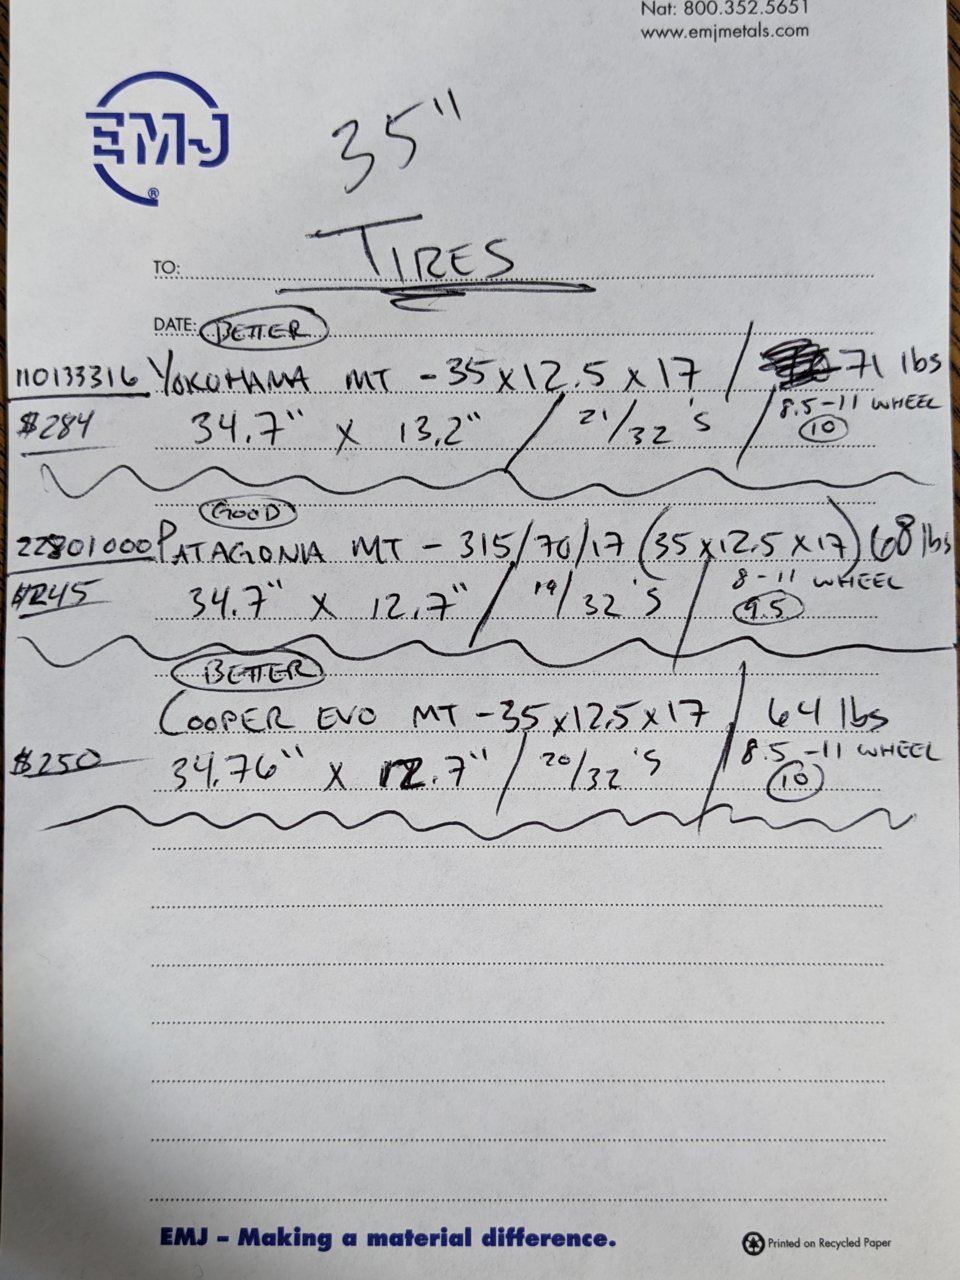 Nat: 800.352.5651
www.emjmetals.com
EMJ
®
35"
TIRES
TO:
DATE: BETTER
110133316 YOKOHAMA MT - 35 x 12.5 x 17 / 71 lbs
$284 34.7" x 13.2" / 21/32's / 8.5-11 WHEEL
10
GOOD
22801000 PATAGONIA MT - 315/70/17 (35 x 12.5 x 17) 68 lbs
$245 34.7" x 12.7" / 19/32's / 8-11 WHEEL
9.5
BETTER
COOPER EVO MT - 35 x 12.5 x 17 / 64 lbs
$250 34.76" x 12.7" / 20/32's / 8.5-11 WHEEL
10
EMJ – Making a material difference.
Printed on Recycled Paper